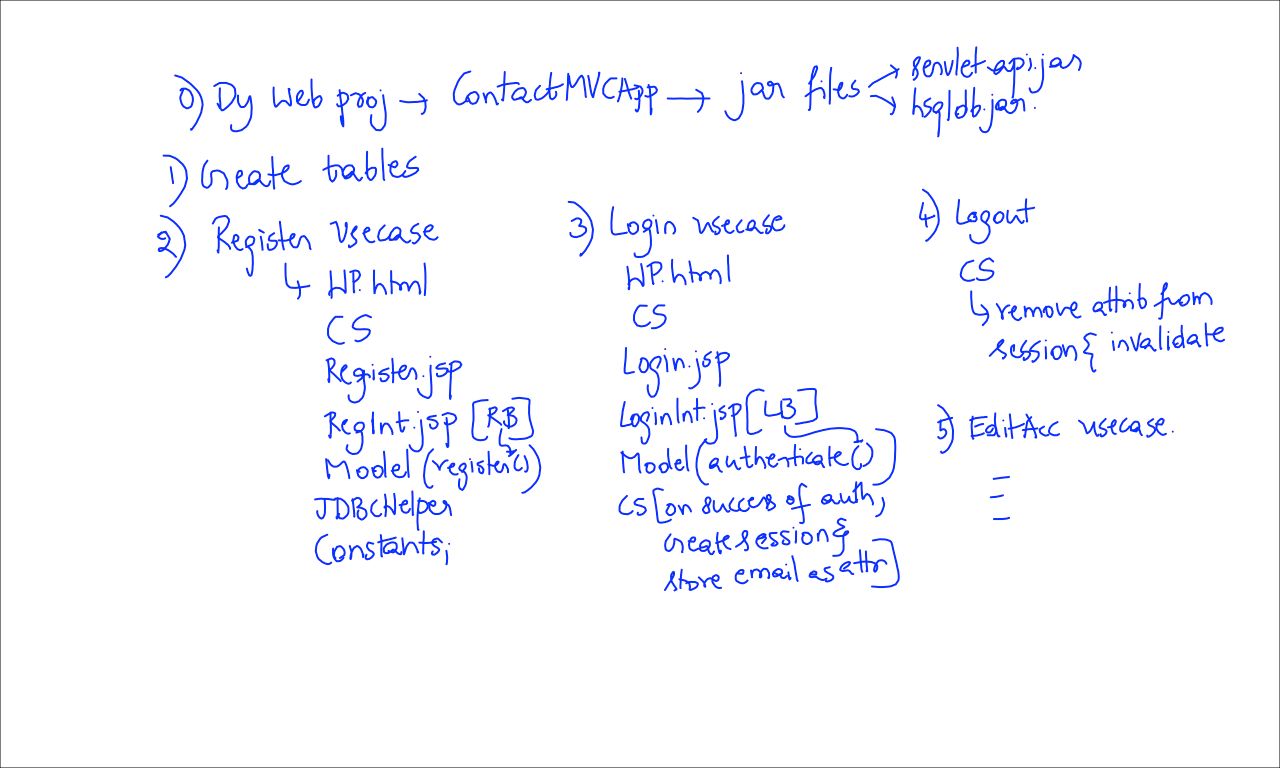 0) Dy Web proj → ContactMVCApp → jar files → servlet-api.jar
→ hsqldb.jar.
1) Create tables
2) Register Usecase
↳ WP.html
CS
Register.jsp
RegInt.jsp [RB]
Model (register())
JDBCHelper
Constants;
3) Login usecase
WP.html
CS
Login.jsp
LoginInt.jsp [LB]
Model (authenticate())
CS [on success of auth,
create session &
store email as attr]
4) Logout
CS
↳ remove attrib from
session & invalidate
5) EditAcc usecase.